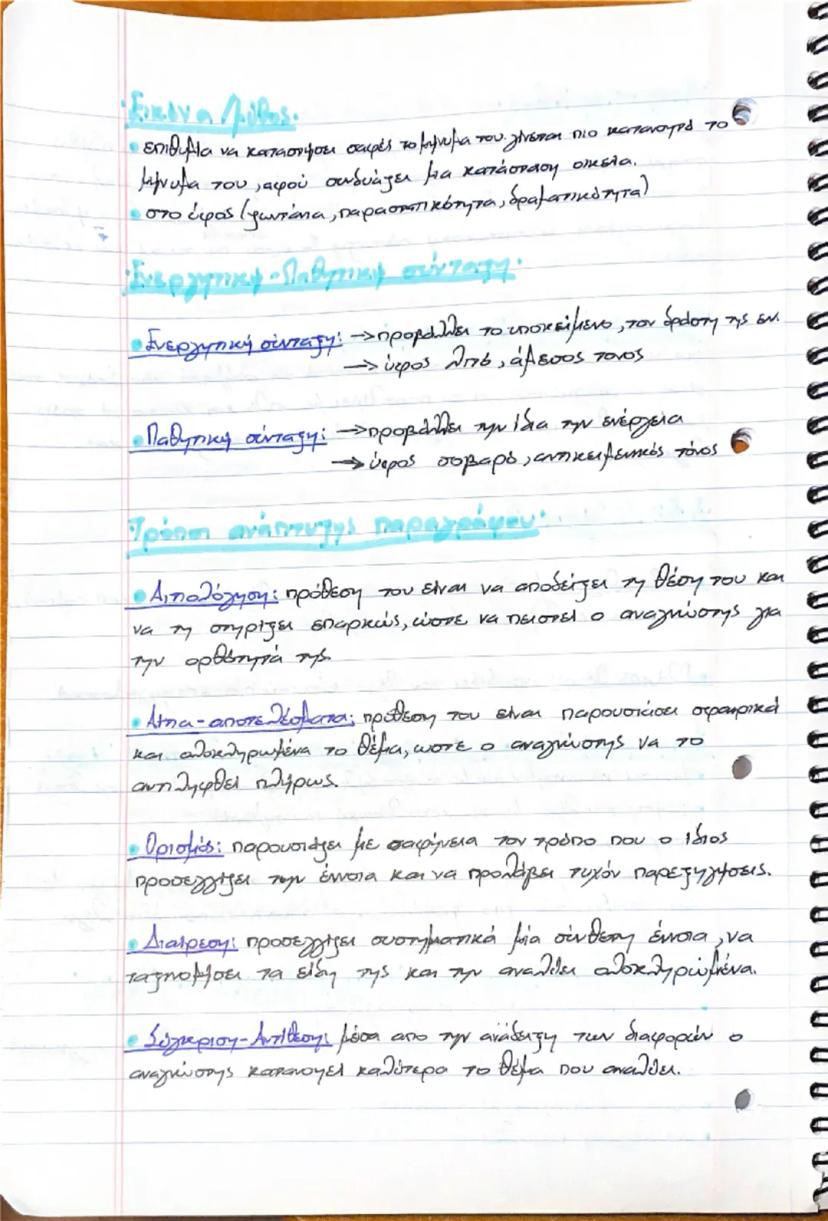 Εικόνα / Μύθος.
• επιθυμία να καταστήσει σαφές το μήνυμα του. γίνεται πιο κατανοητό το
μήνυμα του, αφού συνδυάζει μια κατάσταση οικεία.
• στο ύφος (ζωντάνια, παραστατικότητα, δραματικότητα)
Ενεργητική - Παθητική σύνταξη.
• Ενεργητική σύνταξη: → προβάλλει το υποκείμενο, τον δράστη της εν.
→ ύφος λιτό, άμεσος τόνος
• Παθητική σύνταξη: → προβάλλει την ίδια την ενέργεια
→ ύφος σοβαρό, αντικειμενικός τόνος
Τρόποι ανάπτυξης παραγράφου.
• Αιτιολόγηση: πρόθεση του είναι να αποδείξει τη θέση του και
να τη στηρίξει επαρκώς, ώστε να πειστεί ο αναγνώστης για
την ορθότητά της.
• Αίτια - αποτελέσματα: πρόθεση του είναι παρουσιάσει σφαιρικά
και ολοκληρωμένα το θέμα, ώστε ο αναγνώστης να το
αντιληφθεί πλήρως.
• Ορισμός: παρουσιάζει με σαφήνεια τον τρόπο που ο ίδιος
προσεγγίζει την έννοια και να προλάβει τυχόν παρεξηγήσεις.
• Διαίρεση: προσεγγίζει συστηματικά μία σύνθετη έννοια, να
ταξινομήσει τα είδη της και την αναλύει ολοκληρωμένα.
• Σύγκριση - Αντίθεση: μέσα από την ανάδειξη των διαφορών ο
αναγνώστης κατανοεί καλύτερα το θέμα που αναλύει.